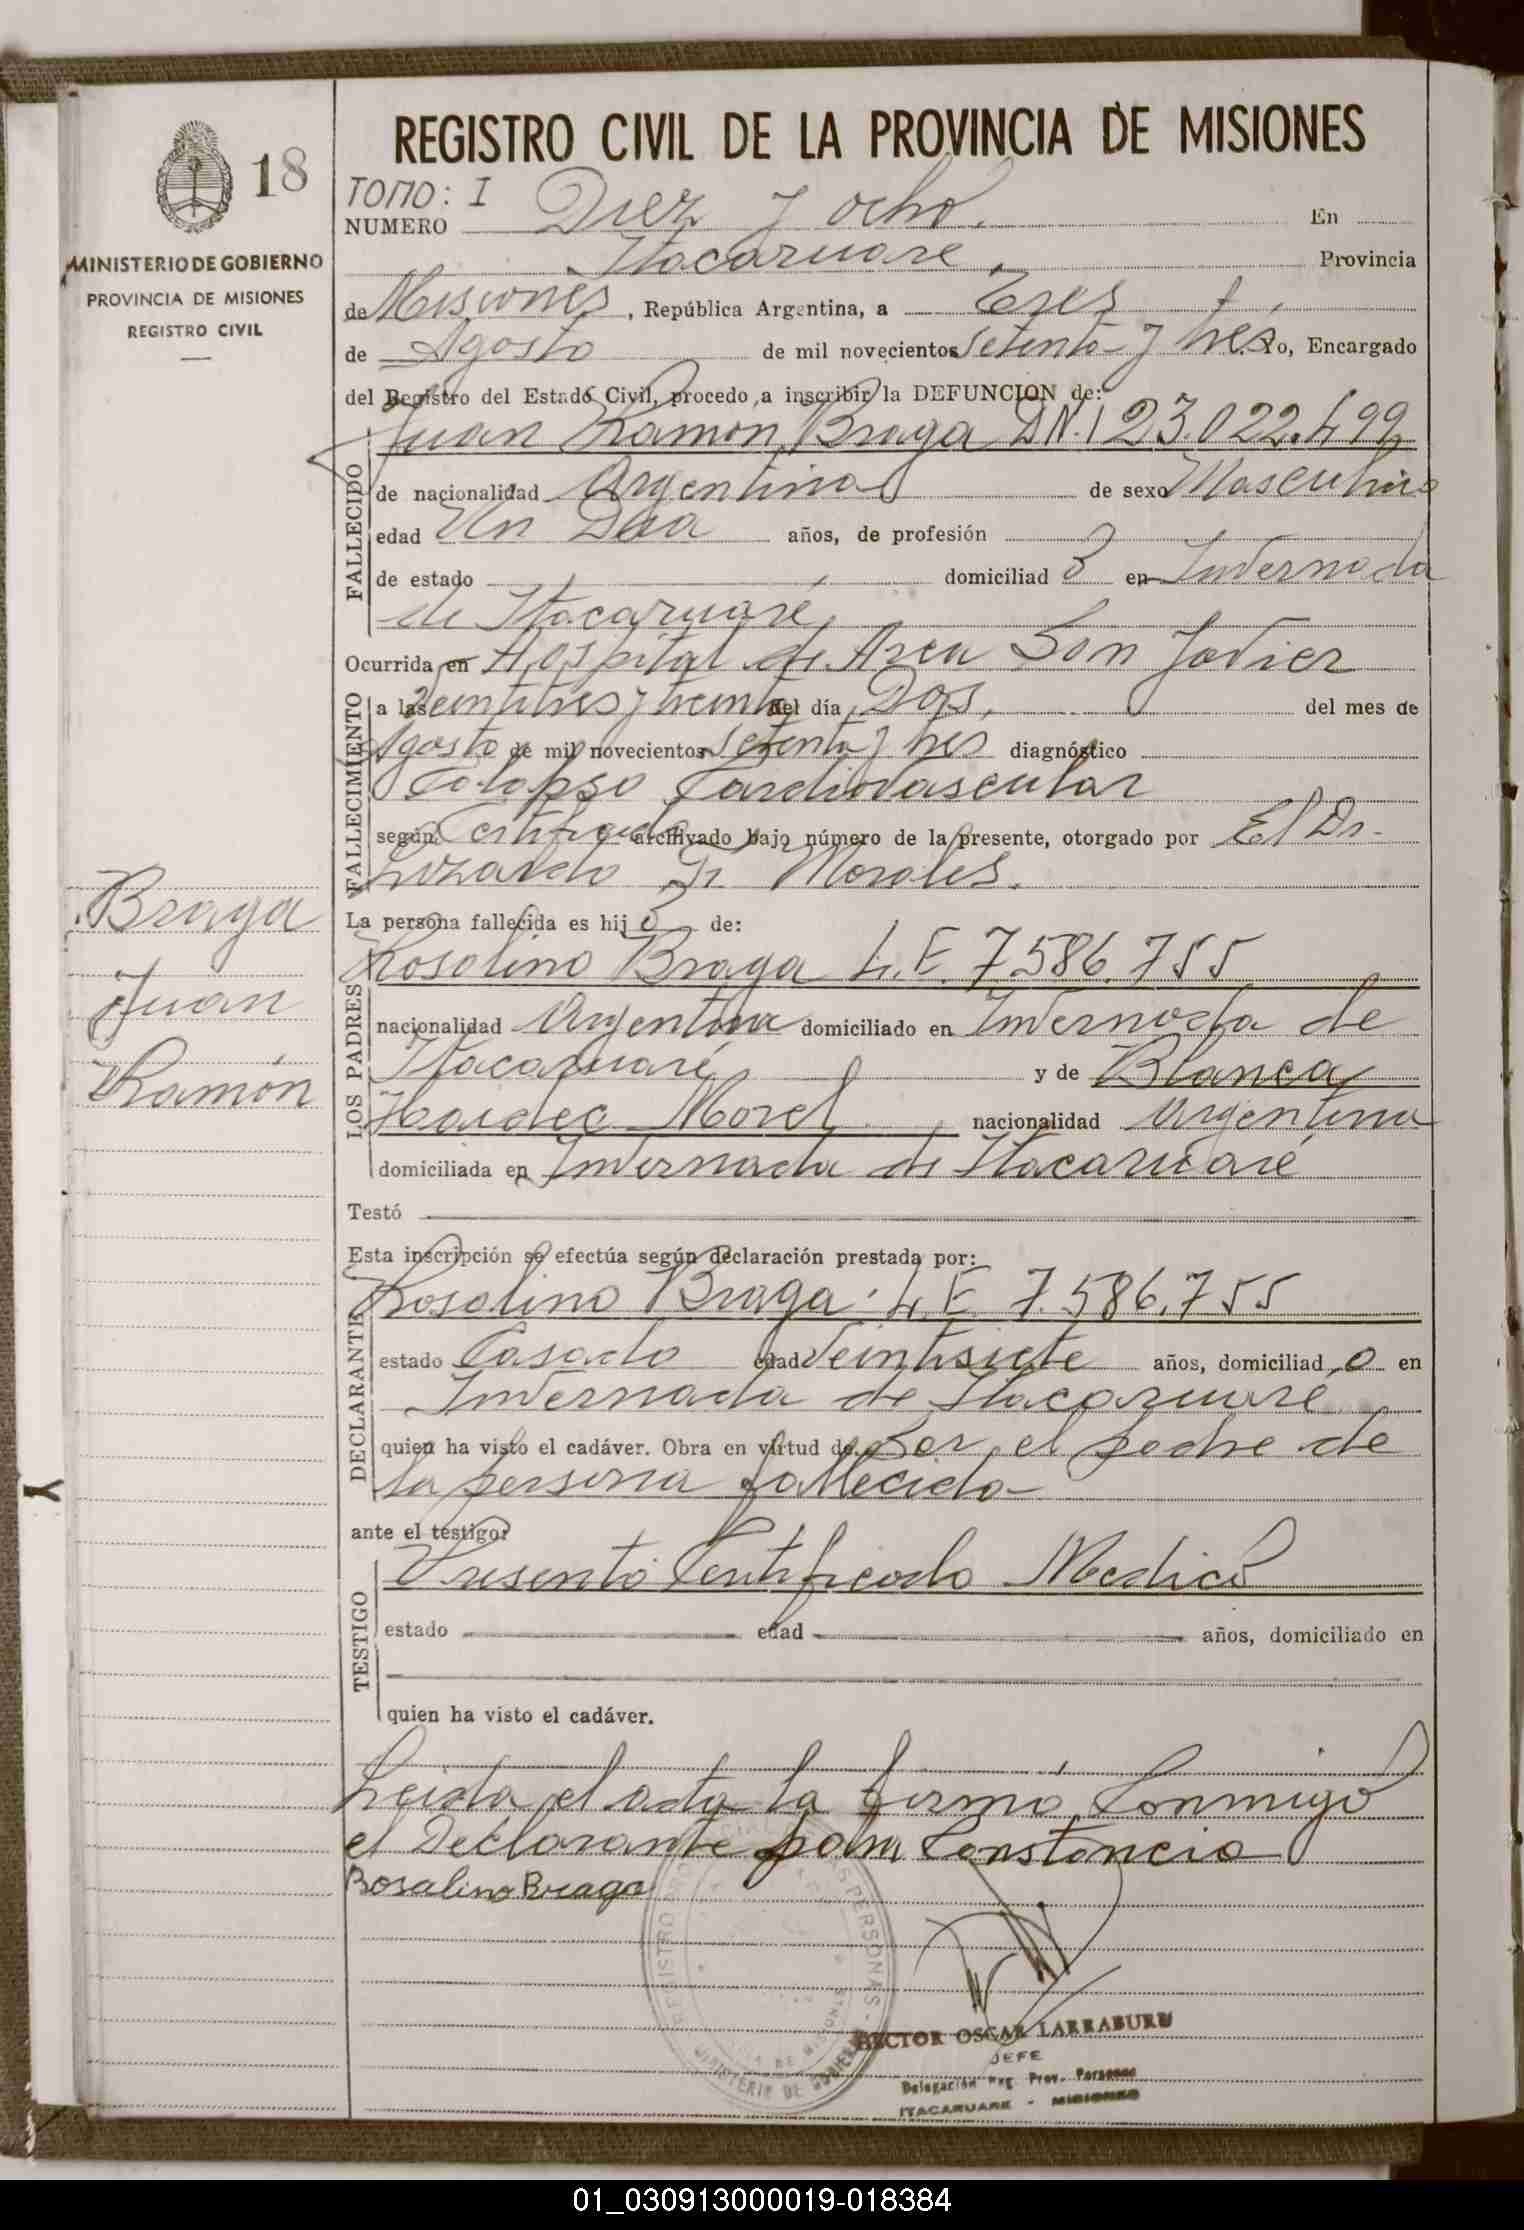 REGISTRO CIVIL DE LA PROVINCIA DE MISIONES
18
MINISTERIO DE GOBIERNO
PROVINCIA DE MISIONES
REGISTRO CIVIL
TOMO: I
NUMERO Diez y ocho. En
Itacaruare, Provincia
de Misiones, República Argentina, a Tres
de Agosto de mil novecientos setenta y tres Yo, Encargado
del Registro del Estado Civil, procedo a inscribir la DEFUNCION de:
FALLECIDO
Juan Ramón Braga DN.I 23.022.499
de nacionalidad Argentina de sexo Masculino
edad Un Dia años, de profesión
de estado domiciliad o en Invernada
de Itacaruaré,
Ocurrida en Hospital de Area San Javier
FALLECIMIENTO
a las veintitres y treinta del día Dos, del mes de
Agosto de mil novecientos setenta y tres diagnóstico
Colapso Cardiovascular
según Certificado archivado bajo número de la presente, otorgado por El Dr.
F. Morales.
La persona fallecida es hij o de:
LOS PADRES
Rosalino Braga L.E. 7.586.755
nacionalidad Argentina domiciliado en Invernada de
Itacaruaré y de Blanca
Haidee Morel, nacionalidad Argentina
domiciliada en Invernada de Itacaruaré
Testó
Esta inscripción se efectúa según declaración prestada por:
DECLARANTE
Rosalino Braga. L.E. 7.586.755
estado Casado edad Veintisiete años, domiciliad o en
Invernada de Itacaruaré
quien ha visto el cadáver. Obra en virtud de Ser el padre de
la persona fallecida
ante el testigo:
TESTIGO
Presentó Certificado Medico
estado edad años, domiciliado en
quien ha visto el cadáver.
Leida el acta la firmó, Conmigo
el Declarante para Constancia
Rosalino Braga
Braga
Juan
Ramón
HECTOR OSCAR LARRABURU
JEFE
Delegación Reg. Prov. Personas
ITACARUARE - MISIONES
01_030913000019-018384